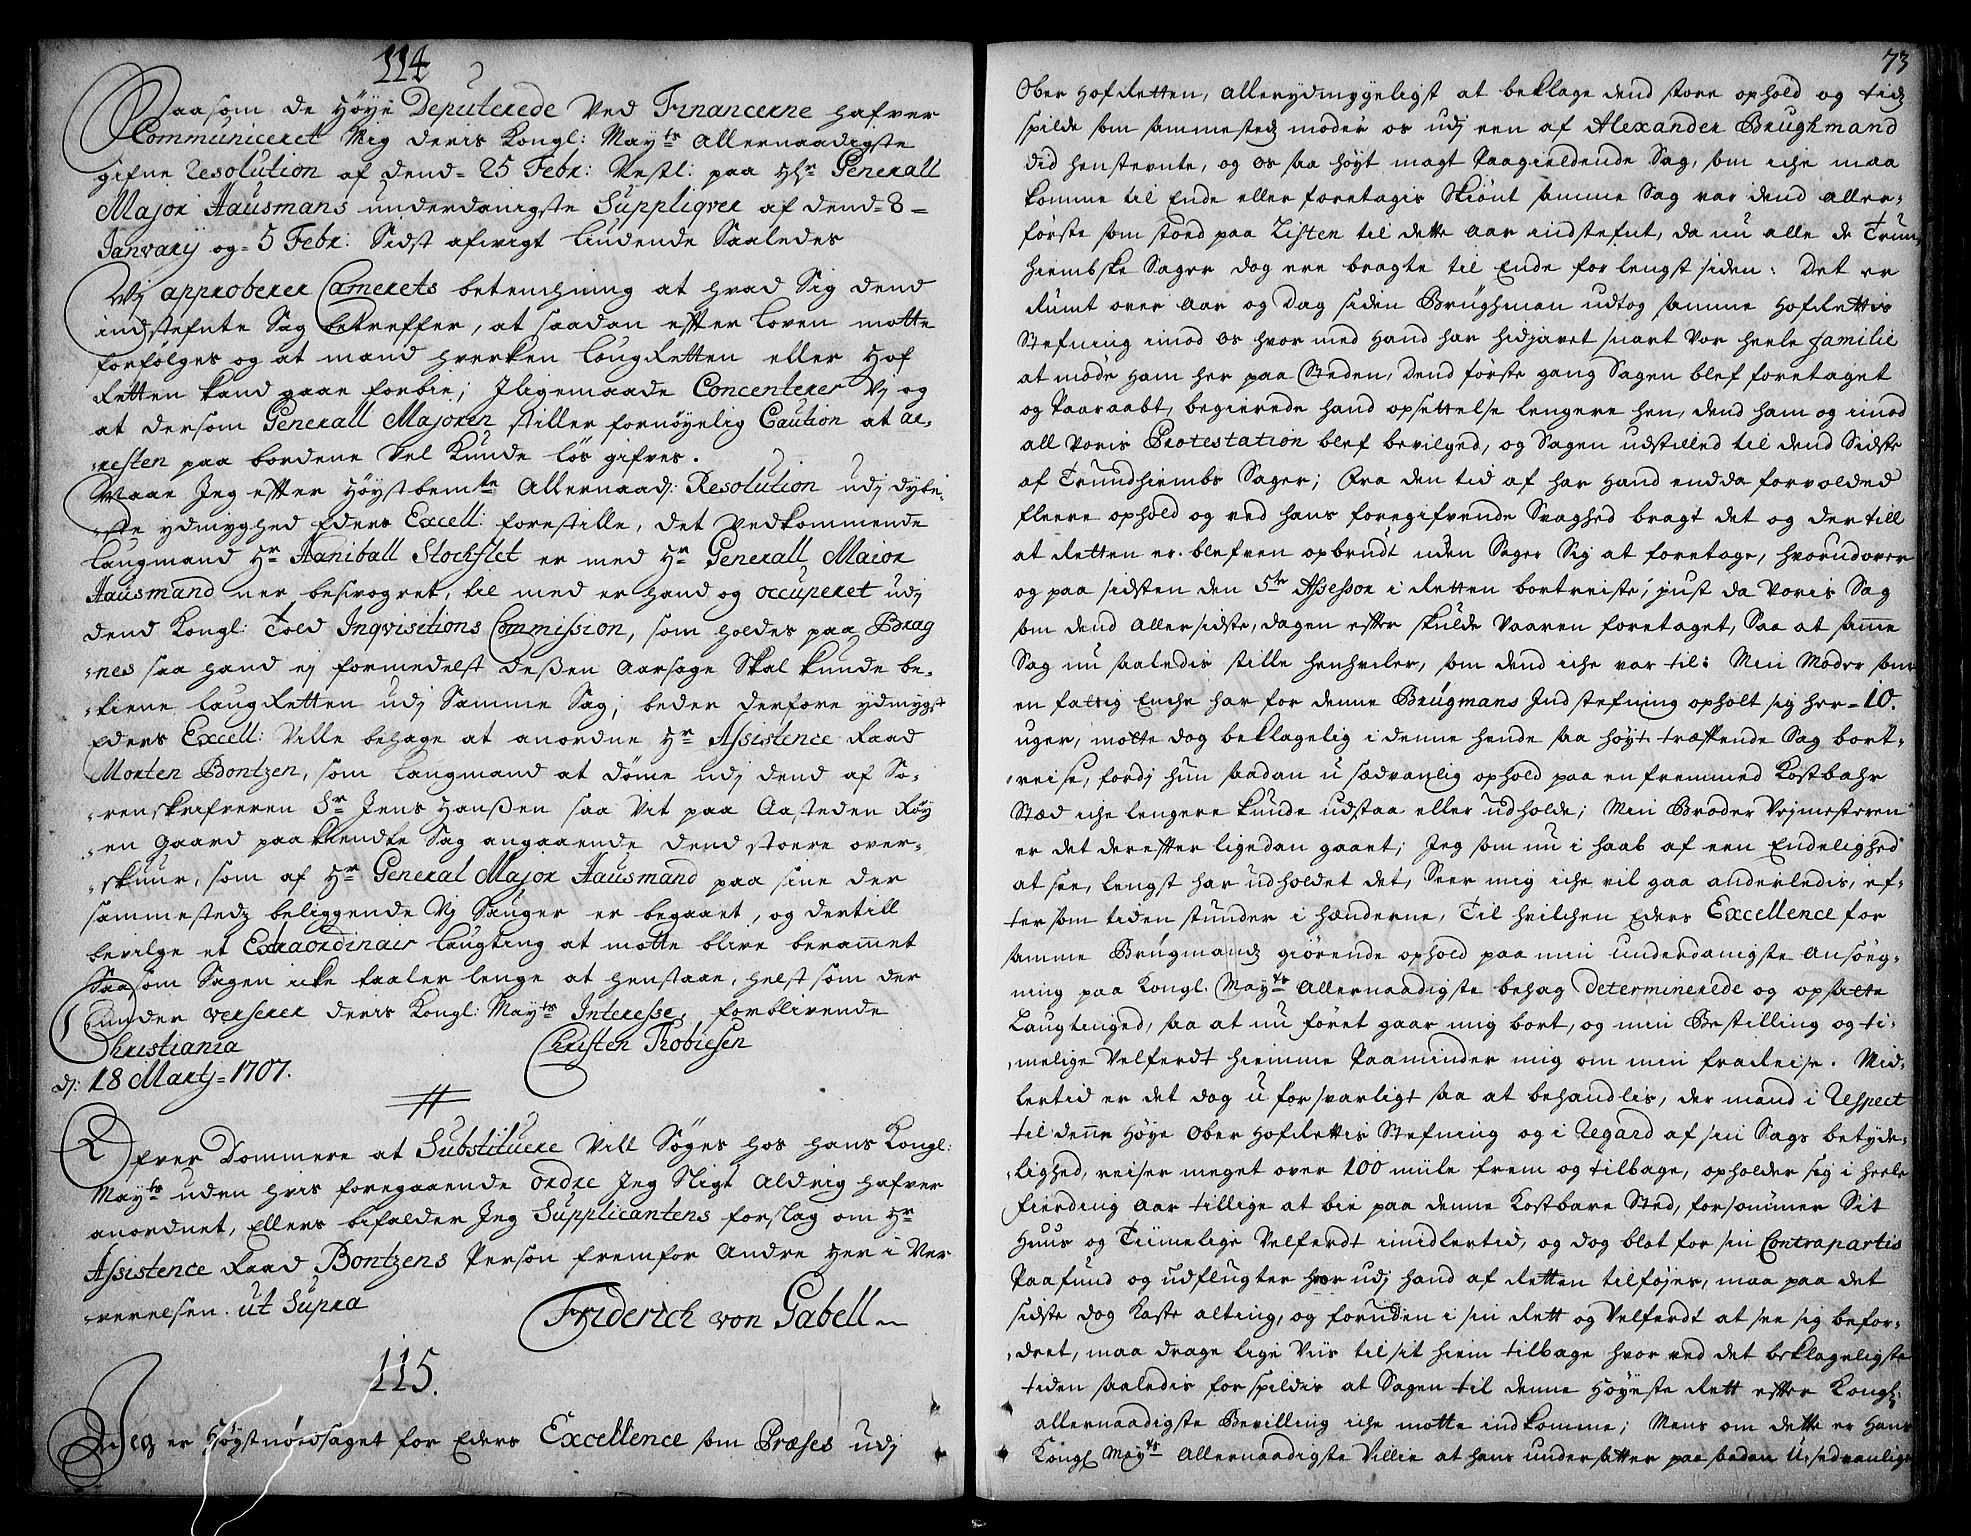 114
Saasom de Høye Deputerede Ved Financerne hafver
Communiceret Mig Deris Kongl: Mayts Allernaadigste
gifne Resolution af dend = 25 Febr: Nestl: paa Hr Generall
Major Hausmans underdanigste Suppliqver af dend = 8 =
Janvarij og = 5 Febr: Sidst afvigt liudende Saaledes
Vj approberer Camerets betenchning at hvad Sig dend
indstefnte Sag betreffer, at saadan effter loven motte
forfølges og at mand hverken Laugretten eller Hof
Retten kand gaae forbie; Iligemaade Concenterer Vj og
at dersom Generall Majoren stiller fornøyelig Caution at Ar,
,resten paa bordene Vel Kunde løs gifves.
Maae Jeg effter Høystbemte Allernaad: Resolution udj dybe,
,ste ydmyghed Eders Excell: forestille, det Vedkommende
Laugmand Hr Haniball Stochflet er med Hr Generall Maior
Hausmand ner besvogret, til med er hand og occuperet udj
dend Kongl: Told Inqvisitions Commission, som holdes paa Brag
,nes saa hand ej formedelst deßen Aarsage Skal kunde be,
,kiene laugretten udj Samme Sag; beder derfore ydmygst
Eders Excell: Ville behage at anordne Hr Assistence Raad
Morten Bontzen, som Laugmand at døme udj dend af So,
,renskrifveren Sr Jens Hanßen saa Vit paa Aasteden Røy
,en Gaard paakiendte Sag angaaende dend stoere over,
,skuur, som af Hr General Major Hausmand paa sine der
sammestedz beliggende Vj Sauger er begaaet, og dertill
bevilge et Extraordinair laugting at motte blive berammet
Saasom Sagen icke taaler lenge at henstaae, helst som der
under verserer deris Kongl: Mayts Interesse, forblivende
Christiania Christen Thobiesen
d: 18 Martj = 1707.
Ofver Dommere at Substituere Vill Søges hos hans Kongl:
Mayts uden hvis foregaaende ordre Jeg Sligt Aldrig hafver
anordnet, Ellers bifalder Jeg Supplicantens forslag om Hr
Assistence Raad Bontzens Person fremfor Andre Her i Ver
,verelsen. ut Supra
Friderich von Gabell
115.
Jeg er Høystnødsaget for Eders Excellence som Præses udj
73
Ober Hofretten, Allerydmygeligst at beklage dend store ophold og tidz
spilde som sammestedz møder os udj een af Alexander Brughmand
did henstevnte, og os saa høyt magt Paagieldende Sag, som iche maa
komme til Ende eller foretagis Skiønt samme Sag var dend aller,
første som stoed paa Listen til dette Aar indstefnt, da nu alle de Trun
hiembske Sager dog ere bragte til Ende for lengst siden: Det er
rumt over Aar og dag siden Brughman udtog samme Hofrettis
Stefning imod os hvor med Hand har hidjavet snart Vor heele familie
at møde Ham her paa Steden, dend første gang Sagen blef foretaget
og Paaraabt, begierede hand opsettelse lengere hen, dend ham og imod
all Voris Protestation blef bevilged, og Sagen udstilled til dend Sidste
af Trundhiembs Sager; Fra den tid af har Hand endda forvolded
fleere ophold og ved hans foregifvende Svaghed bragt det og der till
at Retten er blefven opbrudt uden Sager Sig at foretage, hvorudover
og paa sidsten den 5te Assessor i Retten bortreiste, just da Voris Sag
som dend Allersidste, dagen effter skulde Vaaren foretaget, Saa at samme
Sag nu saaledis stille henhviler, som dend iche var til: Min Moder som
en fattig Enche har for denne Brugmans Indstefning opholt sig her = 10.
uger, motte dog beklagelig i denne hende saa høyt træffende Sag bort,
,reise, fordj hun saadan u sædvanlig ophold paa en fremmed Kostbahr
Stæd iche lengere kunde udstaa eller udholde; Min Broder Vejmesteren
er det dereffter ligedan gaaet; Jeg som nu i haab af een Endelighed
at see, lengst har udholdet det, Seer mig iche vil gaa anderledis, ef,
tersom tiden stunder i hænderne, Til hvilchen Eders Excellence for
samme Brugmandz giørende ophold paa min underdanigste Ansøeg,
ning paa Kongl. Mayts Allernaadigste behag determinerede og opsatte
Laugtinged, saa at nu føret gaar mig bort, og min Bestilling og ti,
,melige Velferdt hiemme Paaminder mig om min fraReise. Mid,
lertid er det dog u forsvarligt saa at behandlis, der mand i Respect
til denne Høye Ober Hofrettis Stefning og i Regard af sin Sags betyde,
,lighed, reiser meget over 100 miile frem og tilbage, opholder sig i heele
fierding Aar tillige at bie paa denne Kostbare Sted, forsømmer Sit
Huus og Tiimelige Velferdt imidlertid, og dog blot for sin Contrapartis
Paafund og udflugter hvor udj hand af Retten tilføjes, maa paa det
sidste dog Kaste alting, og foruden i sin Rett og Velferdt at see sig befor,
,dret, maa drage lige Viis til sit hiem tilbage hvor ved det beklageligste
tiden saaledis forspildis at Sagen til denne Høyeste Rett effter Kongl:
allernaadigste Bevilling iche motte indkomme; Mens om dette er Hans
Kongl Mayts Allernaadigste Villie at hans undersatter paa saadan u,sedvanlig